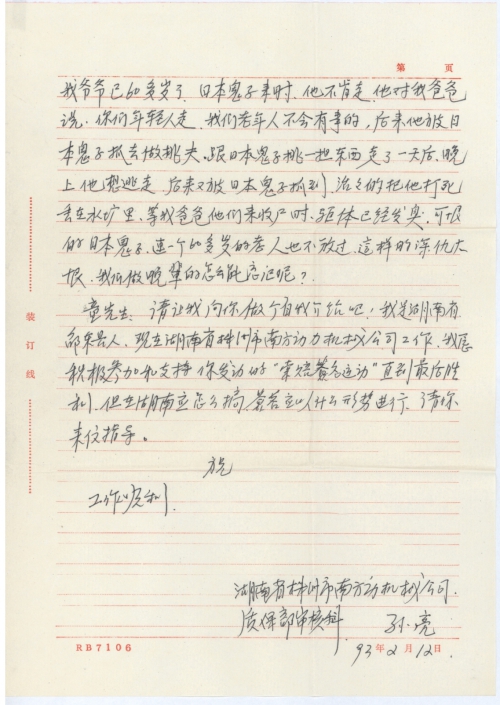 第 页
我爷爷已60多岁了，日本鬼子来时，他不肯走，他对我爸爸
说，你们年轻人走，我们老年人不会有事的，后来他被日
本鬼子抓去做挑夫，跟日本鬼子挑一担东西走了一天后，晚
上他想逃走，后来又被日本鬼子抓到，活活的把他打死
丢在水圹里，等我爸爸他们来收尸时，躯体已经发臭，可恨
的日本鬼子，连一个60多岁的老人也不放过，这样的深仇大
恨，我们做晚辈的怎么能忘记呢？
童先生：请让我向你做个自我介绍吧，我是湖南省
邵东县人，现在湖南省株洲市南方动力机械公司工作，我愿
积极参加和支持你发动的“索赔签名运动”直到最后胜
利，但在湖南应怎么搞，签名应以什么形势进行，请你
来信指导。
祝
工作顺利
湖南省株洲市南方动机械公司
质保部审核科 孙亮
93年2月12日
装订线
RB7106